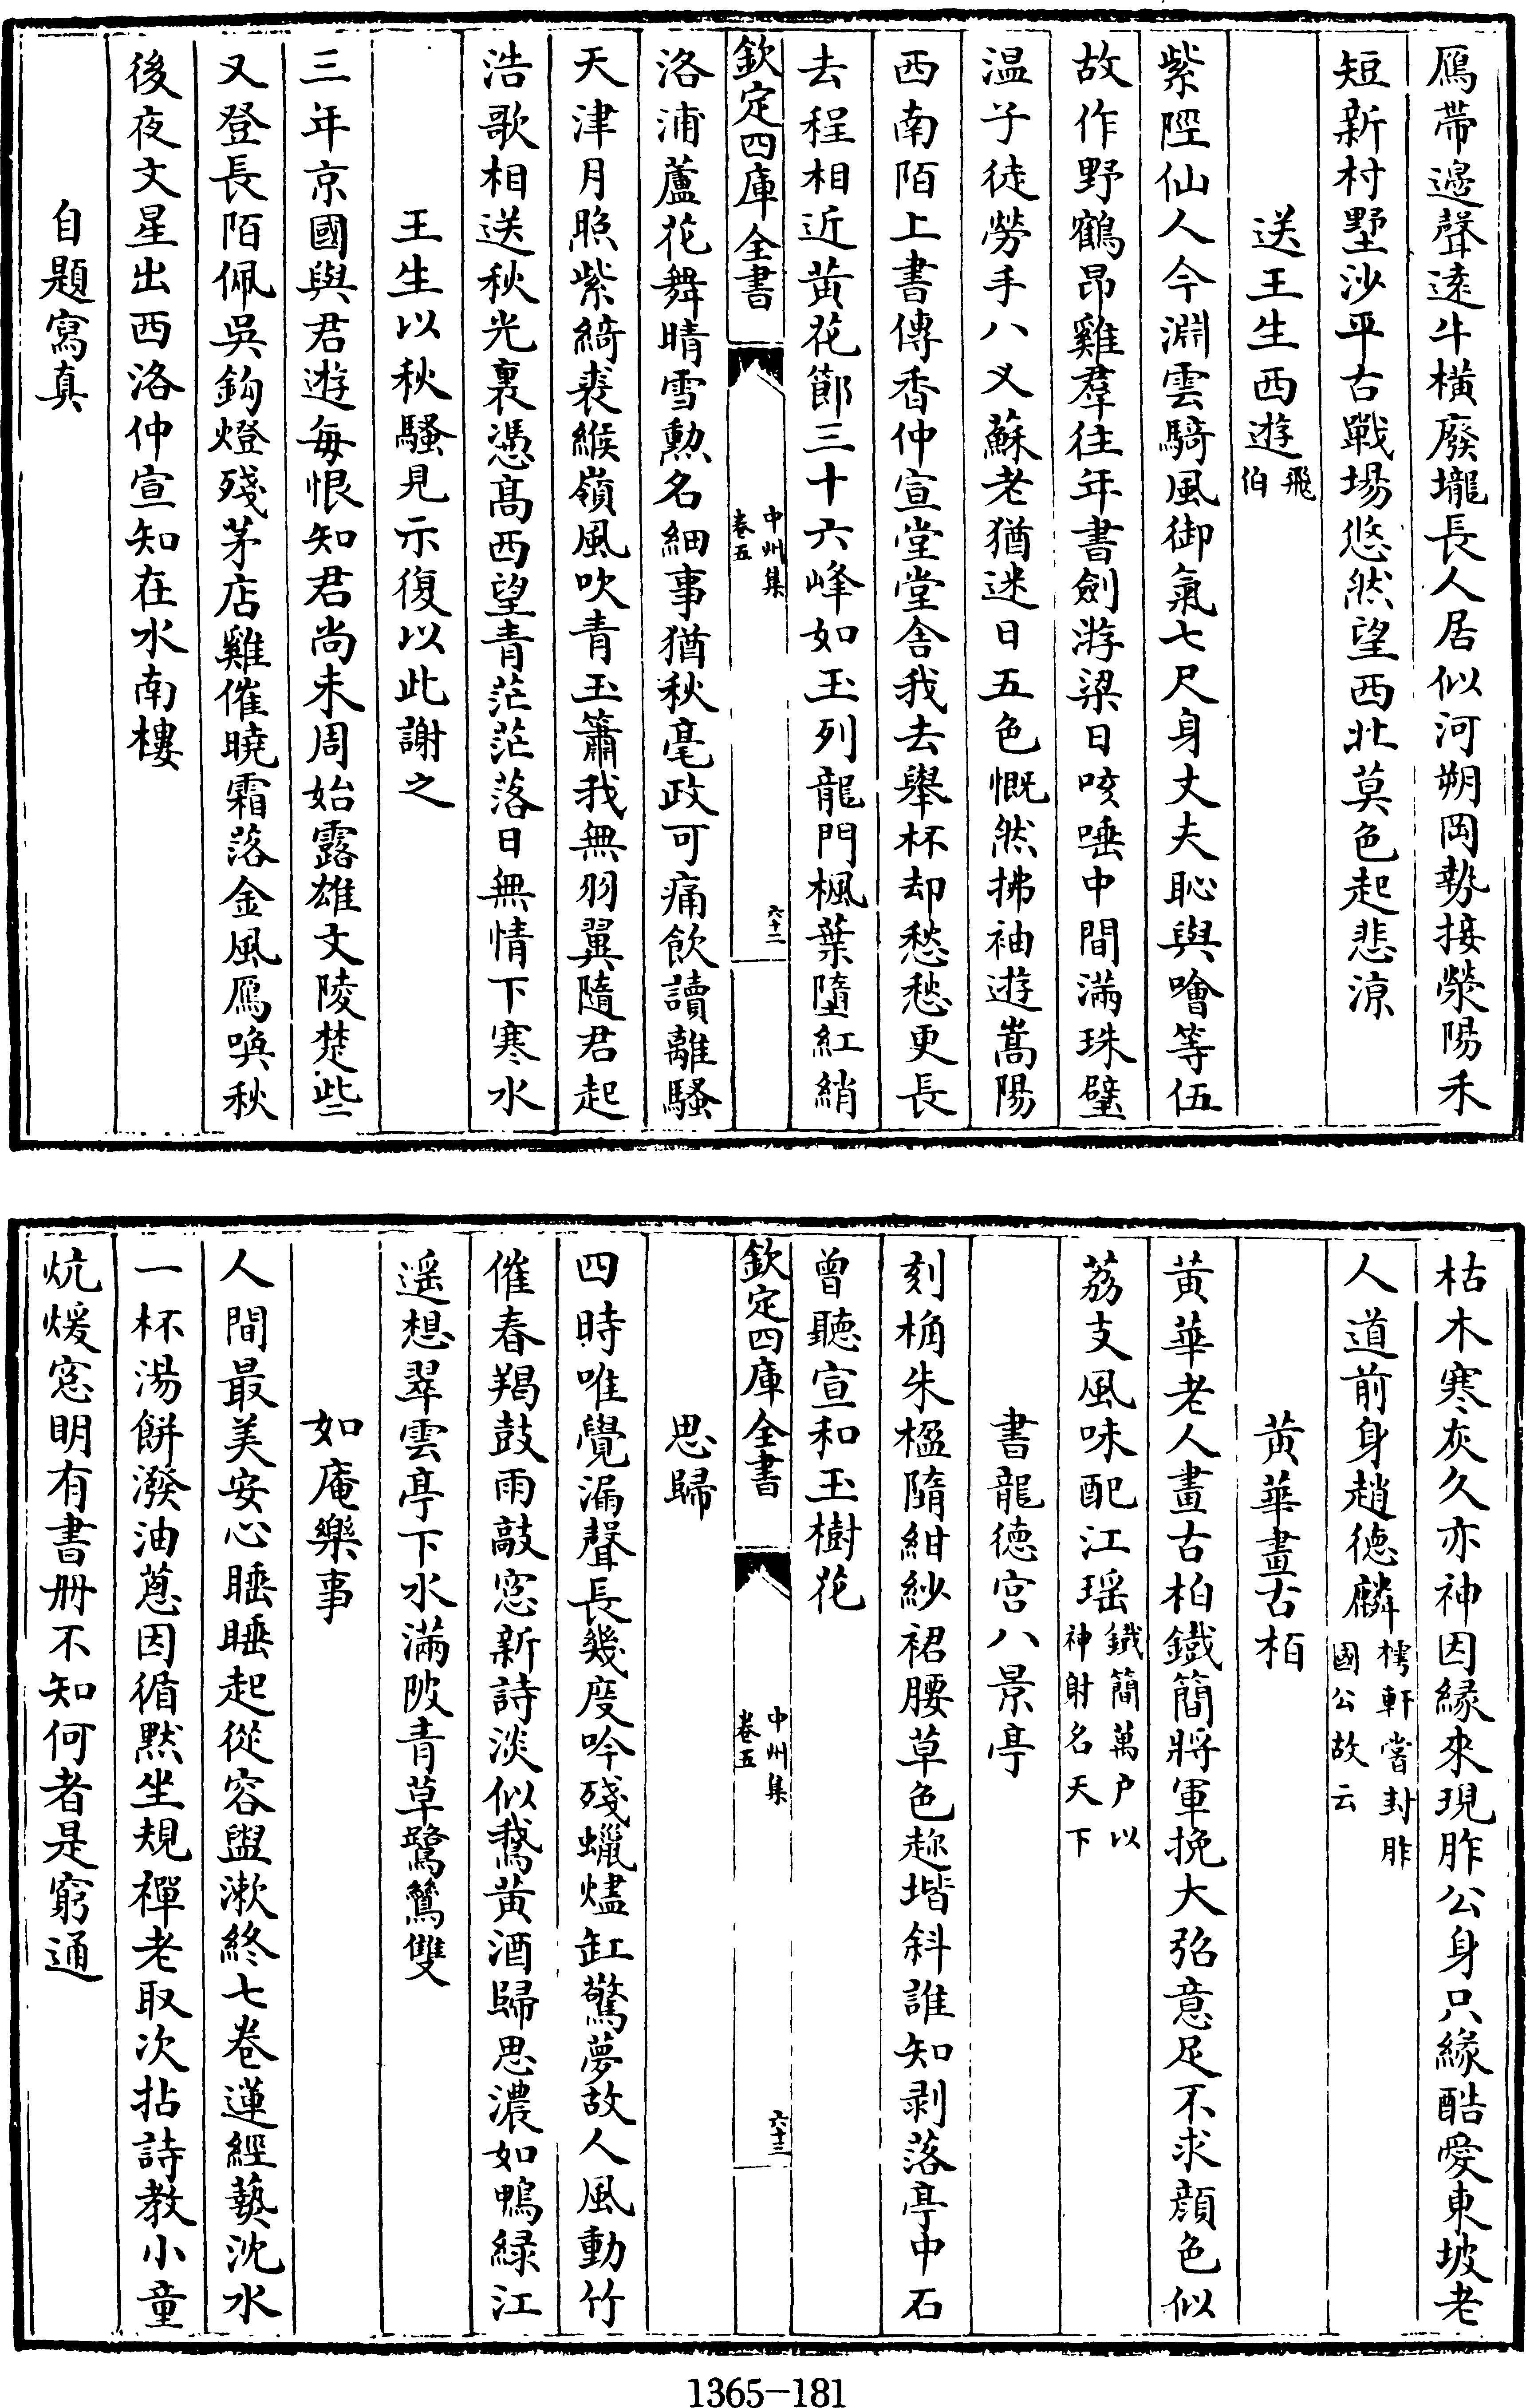 鴈帶邊聲遠牛橫廢壠長人居似河朔岡勢接滎陽禾
短新村墅沙平古戰場悠然望西北莫色起悲涼
送王生西遊飛伯
紫陘仙人今淵雲騎風御氣七尺身丈夫恥與噲等伍
故作野鶴昂雞羣往年書劍游梁日咳唾中間滿珠璧
温子徒勞手八叉蘇老猶迷日五色慨然拂袖遊嵩陽
西南陌上書傳香仲宣堂堂舍我去舉杯却愁愁更長
去程相近黃花節三十六峰如玉列龍門楓葉墮紅綃
欽定四庫全書
中州集
卷五
六十二
洛浦蘆花舞晴雪勲名細事猶秋毫政可痛飲讀離騷
天津月照紫綺裘緱嶺風吹青玉簫我無羽翼隨君起
浩歌相送秋光裏憑高西望青茫茫落日無情下寒水
王生以秋騷見示復以此謝之
三年京國與君遊每恨知君尚未周始露雄文陵楚些
又登長陌佩吳鈎燈殘茅店雞催曉霜落金風鴈喚秋
後夜文星出西洛仲宣知在水南樓
自題寫真
枯木寒灰久亦神因緣來現胙公身只緣酷愛東坡老
人道前身趙德麟樗軒嘗封胙國公故云
黃華畫古栢
黃華老人畫古柏鐵簡將軍挽大弨意足不求顔色似
荔支風味配江瑶鐵簡萬户以神射名天下
書龍德宮八景亭
刻桷朱楹隋紺紗裙腰草色趂堦斜誰知剥落亭中石
曾聽宣和玉樹花
欽定四庫全書
中州集
卷五
六十三
思歸
四時唯覺漏聲長幾度吟殘蠟燼缸驚夢故人風動竹
催春羯鼓雨敲窓新詩淡似鵞黃酒歸思濃如鴨緑江
遥想翠雲亭下水滿陂青草鷺鷥雙
如庵樂事
人間最美安心睡睡起從容盥漱終七卷蓮經爇沈水
一杯湯餅潑油葱因循黙坐規禪老取次拈詩教小童
炕煖窓明有書冊不知何者是窮通
1365-181